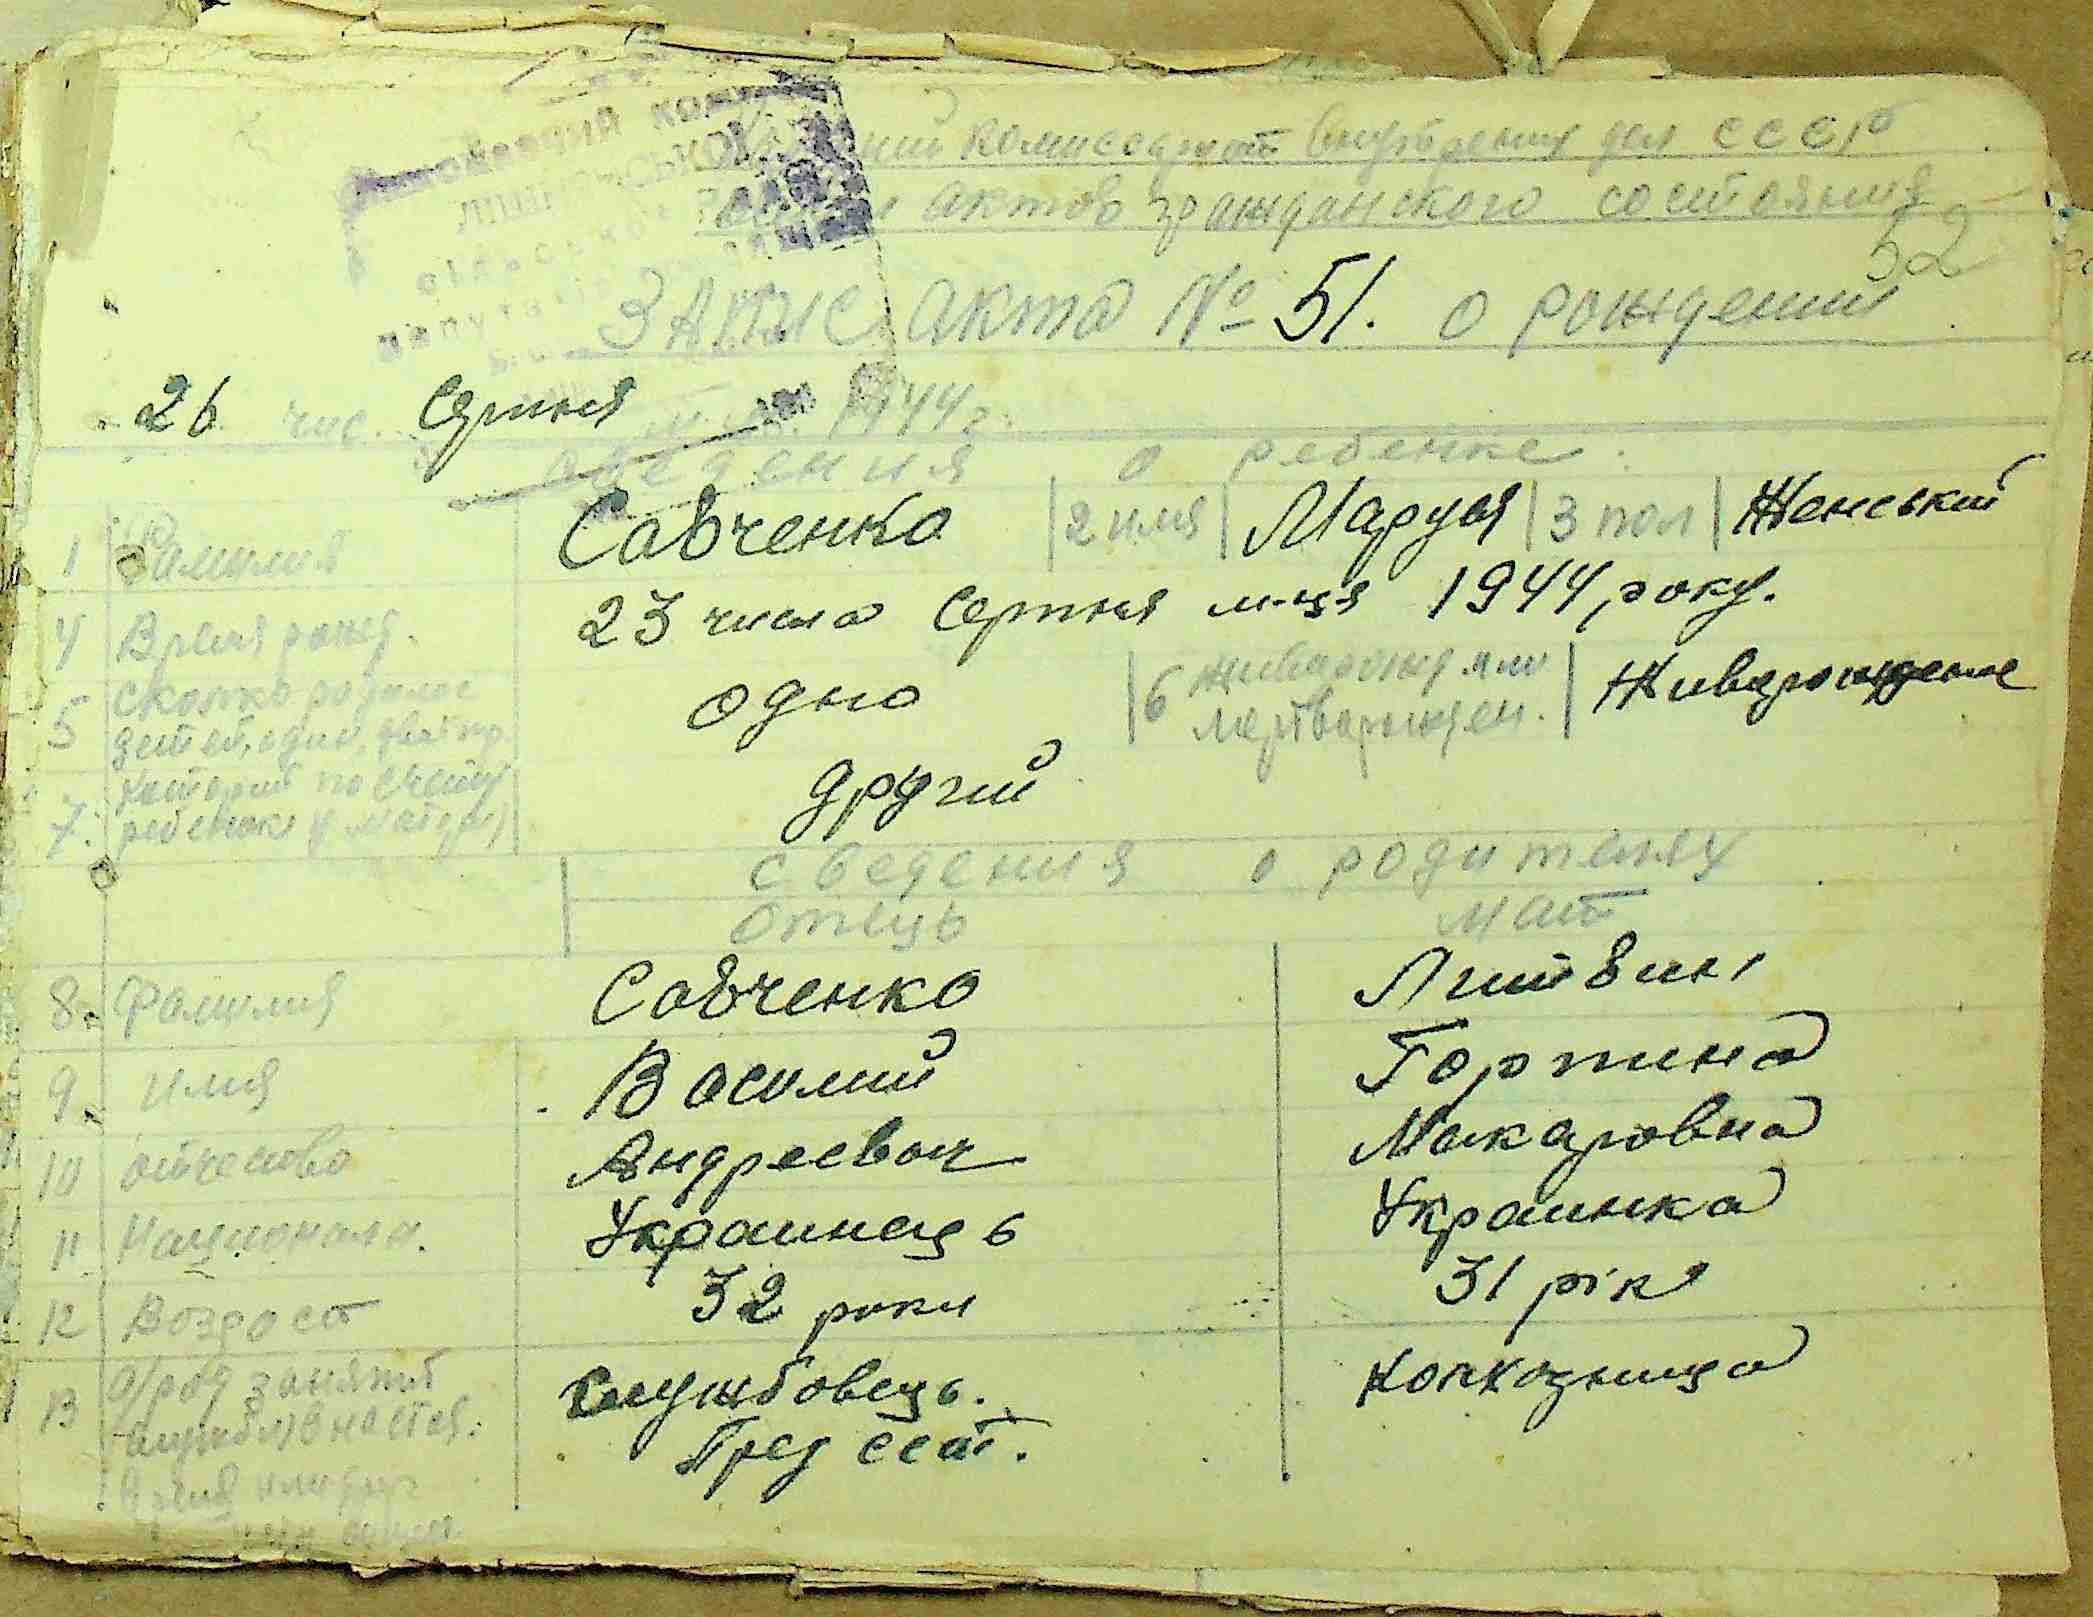 комисариат внутрених дел СССР
актов гражданского состояния
52
Запис акта № 51. о рождении
26 чис. Серпня 1944 г.
сведения о ребенке.
1 Фамилия Савченко 2 имя Маруся 3 пол Женський
4 Время рожд. 23 числа Серпня м-ця 1944, року.
5 сколко родилос детей, один, двое
одно
6 живарожд или мертварожден. Живарождене
7. которий по счету ребенок у матери
другий
сведения о родителях
отець мат
8. Фамилия Савченко Литвин
9. имя Василий Горпина
10 отчество Андреевич Макаровна
11 Национал. Украинець Украинка
12 Возраст 32 роки 31 рік
13 а) род занятий
Службовець. Колхозница
Пред ссат.